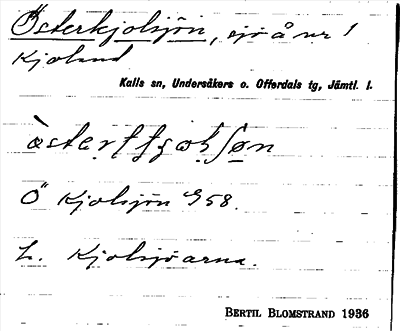 Österkjolsjön, sjö å nr 1
Kjoland
Kalls sn, Undersåkers o. Offerdals tg, Jämtl. l.
Ö Kjolsjön G58.
L. Kjolsjöarna.
BERTIL BLOMSTRAND 1936